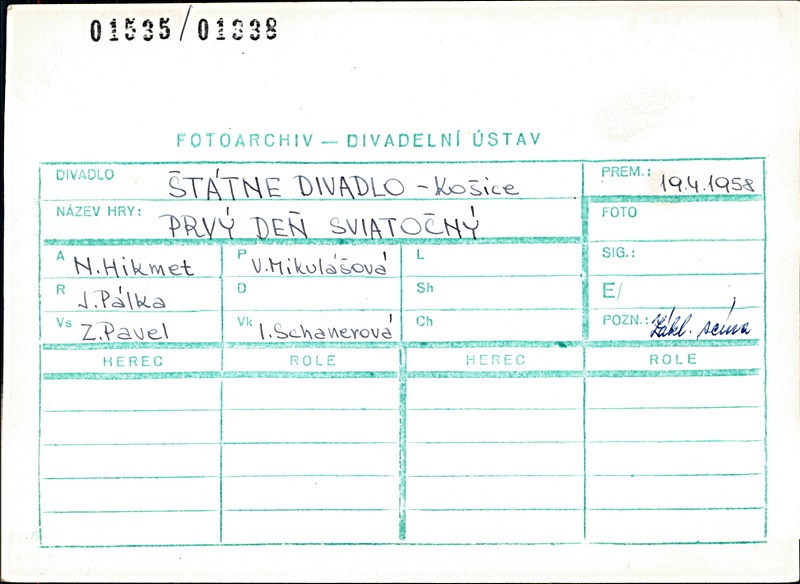 01535/01338
FOTOARCHIV — DIVADELNÍ ÚSTAV
DIVADLO ŠTÁTNE DIVADLO - Košice
PREM.: 19.4.1958
NÁZEV HRY: PRVÝ DEŇ SVIATOČNÝ
FOTO
A N. Hikmet P V. Mikulášová L
SIG.:
R J. Pálka D Sh
E/
Vs Z. Pavel Vk I. Schanerová Ch
POZN.: Zákl. scéna
HEREC ROLE HEREC ROLE